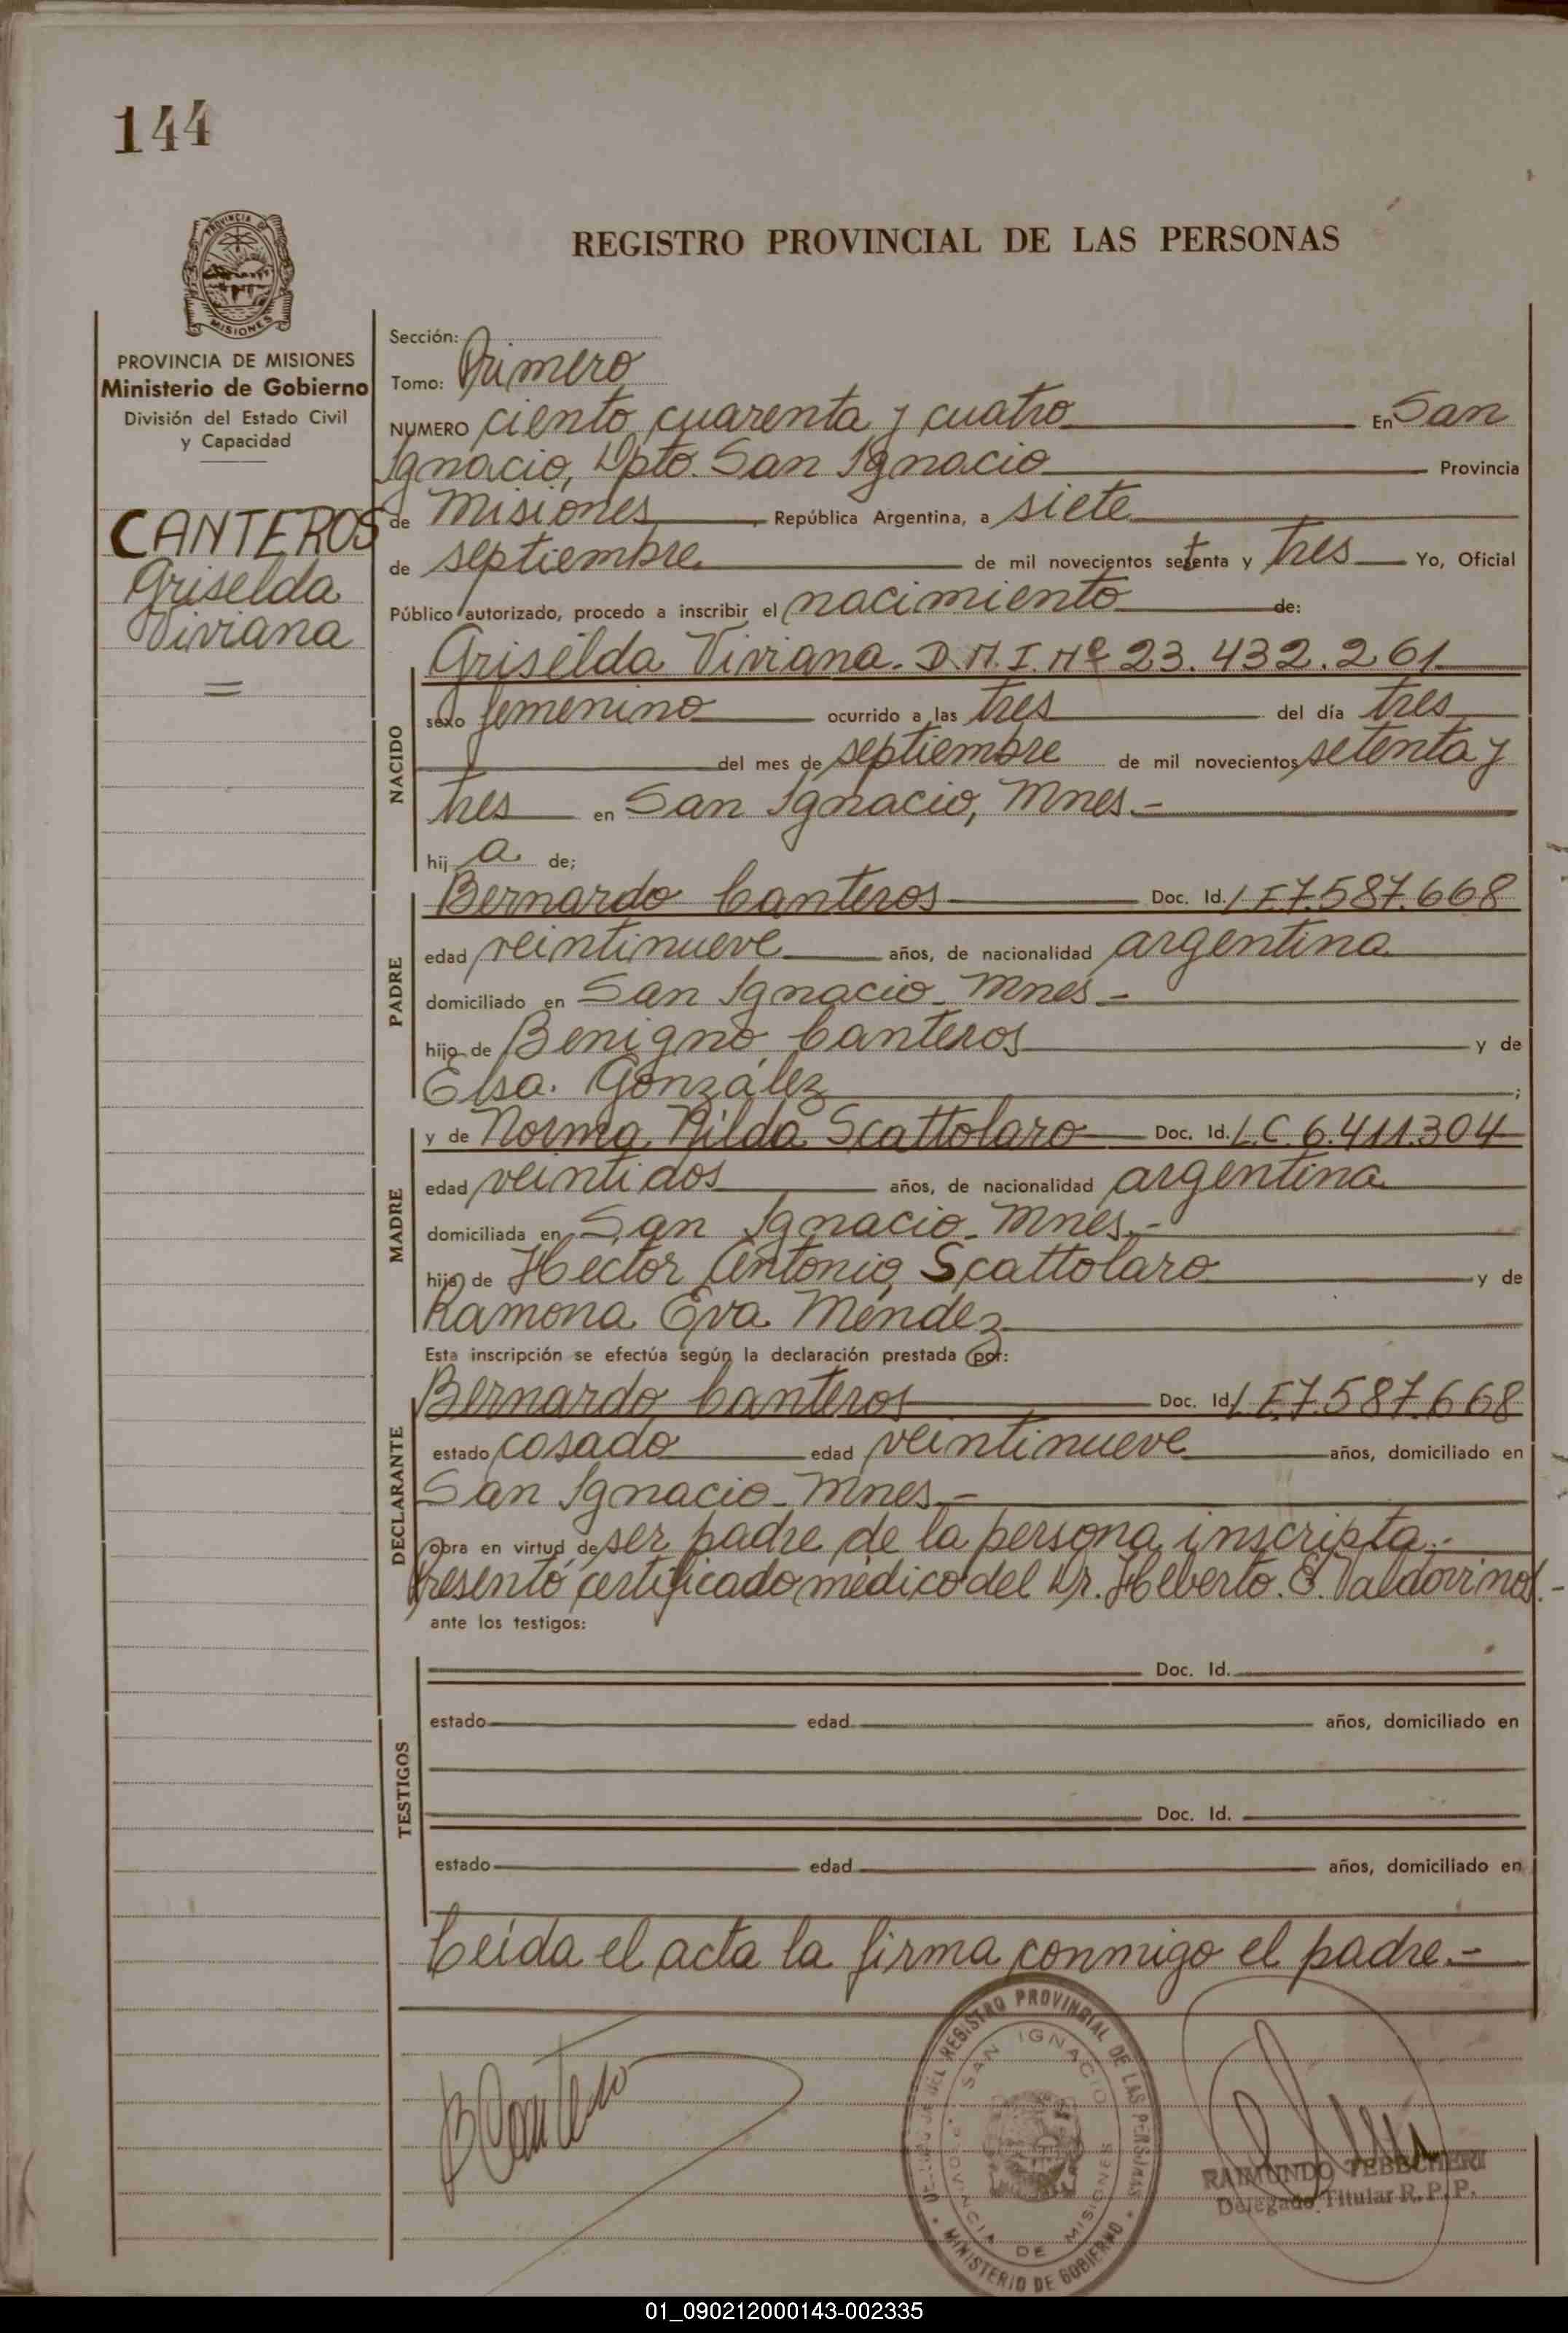 144
PROVINCIA DE
MISIONES
REGISTRO PROVINCIAL DE LAS PERSONAS
PROVINCIA DE MISIONES
Ministerio de Gobierno
División del Estado Civil
y Capacidad
CANTEROS
Griselda
Viviana
Sección:
Tomo: Primero
NUMERO ciento cuarenta y cuatro En San
Ignacio, Dpto. San Ignacio Provincia
de Misiones, República Argentina, a siete
de septiembre de mil novecientos setenta y tres Yo, Oficial
Público autorizado, procedo a inscribir el nacimiento de:
Griselda Viviana. D.N.I. Nº 23.432.261
NACIDO
sexo femenino ocurrido a las tres del día tres
del mes de septiembre de mil novecientos setenta y
tres en San Ignacio, Mnes.-
hija de;
PADRE
Bernardo Canteros Doc. Id. L.E.7.587.668
edad veintinueve años, de nacionalidad argentina
domiciliado en San Ignacio - Mnes.-
hijo de Benigno Canteros y de
Elsa González ;
MADRE
y de Norma Nilda Scattolaro Doc. Id. L.C. 6.411.304
edad veintidos años, de nacionalidad argentina
domiciliada en San Ignacio - Mnes.-
hija de Héctor Antonio Scattolaro y de
Ramona Eva Méndez
Esta inscripción se efectúa según la declaración prestada por:
DECLARANTE
Bernardo Canteros Doc. Id. L.E.7.587.668
estado casado edad veintinueve años, domiciliado en
San Ignacio - Mnes.-
obra en virtud de ser padre de la persona inscripta.-
Presentó certificado médico del Dr. Helberto. E. Valdovinos.-
ante los testigos:
TESTIGOS
Doc. Id.
estado edad años, domiciliado en
Doc. Id.
estado edad años, domiciliado en
Leída el acta la firma conmigo el padre.-
B Canteros
REGISTRO PROVINCIAL DE LAS PERSONAS
SAN IGNACIO
PROVINCIA DE MISIONES
MINISTERIO DE GOBIERNO
RAIMUNDO TEBECHERI
Delegado Titular R.P.P.
01_090212000143-002335